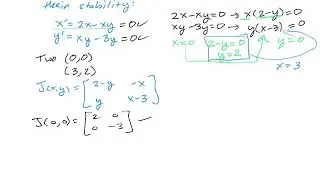 their stability:
x' = 2x - xy = 0
y' = xy - 3y = 0
Two (0,0)
(3,2)
J(x,y) = [2-y -x
y x-3]
J(0,0) = [2 0
0 -3] —
2x-xy=0 → x(2-y)=0
xy-3y=0 → y(x-3)=0
x=0 2-y=0 y=0
y=2
x=3